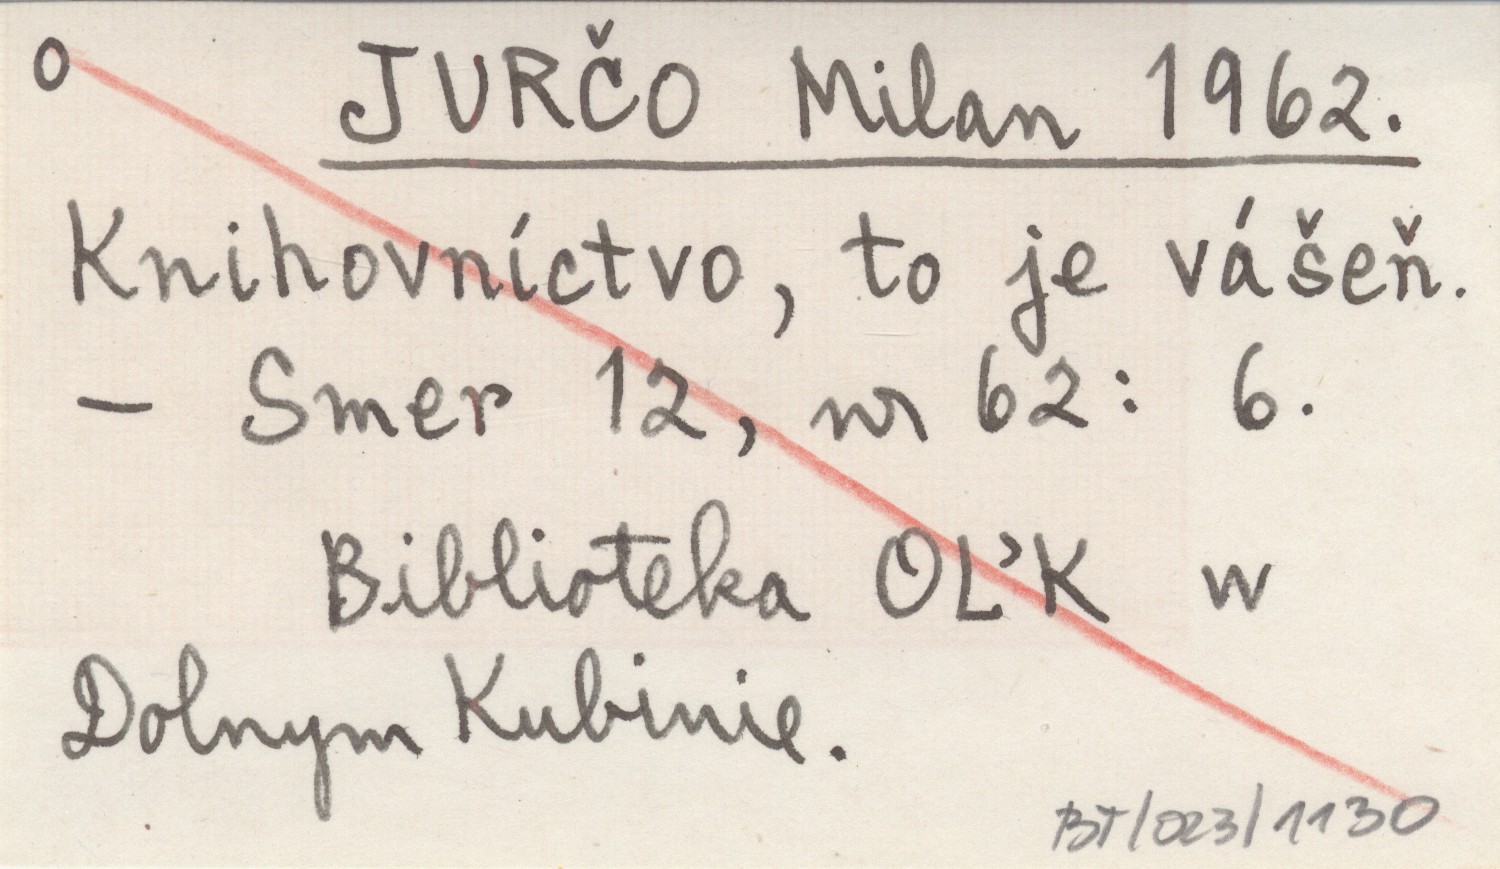 o JURČO Milan 1962.
Knihovníctvo, to je vášeň.
- Smer 12, nr 62: 6.
Biblioteka OĽK w
Dolnym Kubinie.
BT/023/1130